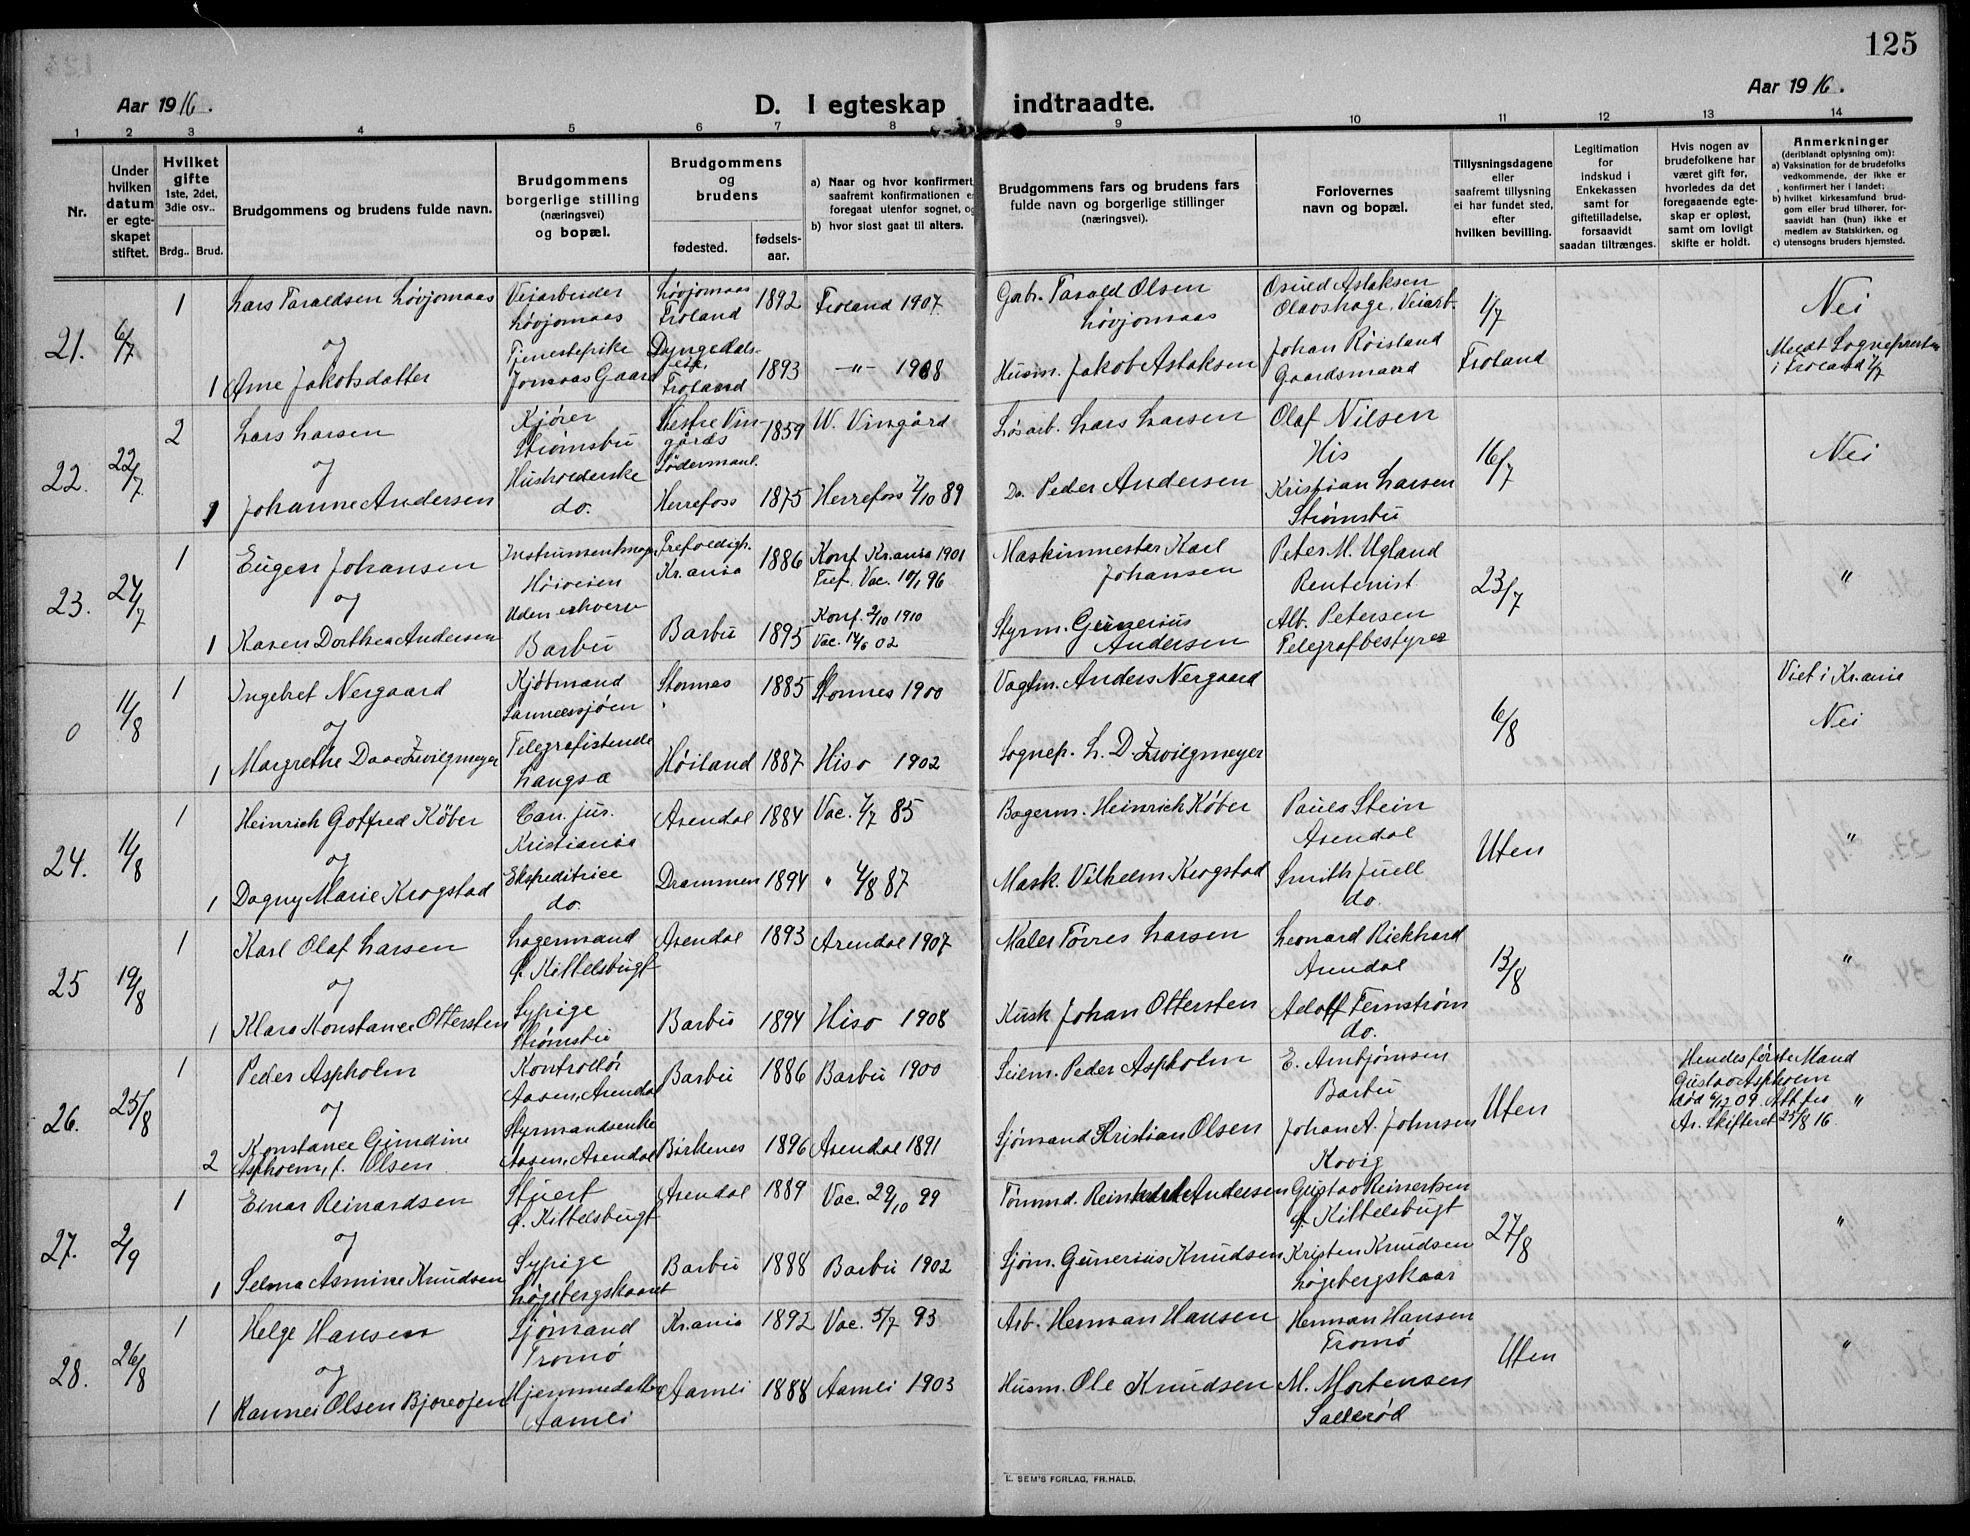 125
Aar 1916.
D. I egteskap indtraadte.
Aar 1916.
1 2 3 4 5 6 7 8 9 10 11 12 13 14
Nr.
Under hvilken datum er egteskapet stiftet.
Hvilket gifte 1ste, 2det, 3die osv..
Brdg.. Brud.
Brudgommens og brudens fulde navn.
Brudgommens borgerlige stilling (næringsvei) og bopæl.
Brudgommens og brudens
fødested.
fødsels-aar.
a) Naar og hvor konfirmert, saafremt konfirmationen er foregaat utenfor sognet, og
b) hvor sidst gaat til alters.
Brudgommens fars og brudens fars fulde navn og borgerlige stillinger (næringsvei).
Forlovernes navn og bopæl.
Tillysningsdagene eller saafremt tillysning ei har fundet sted, efter hvilken bevilling.
Legitimation for indskud i Enkekassen samt for giftetilladelse, forsaavidt saadan tiltrænges.
Hvis nogen av brudefolkene har været gift før, hvorledes da det foregaaende egteskap er opløst, samt om lovligt skifte er holdt.
Anmerkninger
(deriblandt oplysning om):
a) Vaksination for de brudefolks vedkommende, der ikke er konfirmert her i landet;
b) hvilket kirkesamfund brudgom eller brud tilhører, forsaavidt han (hun) ikke er medlem av Statskirken, og
c) utensogns bruders hjemsted.
21. 6/7 1 Lars Taraldsen Løvjomaas Veiarbeider Løvjomaas Løvjomaas Froland 1892 Froland 1907. Gbr. Tarald Olsen Løvjomaas Osuld Aslaksen Olavshage, Veiarb. 1/7 Nei
og
1 Ane Jakobsdatter Tjenestepike Jomaas Gaard Froland 1893 —"— 1908 Husm. Jakob Aslaksen Johan Røisland Gaardsmaard Froland Meldt Sognepresten i Froland 7/7
22. 22/7 2 Lars Larsen Kjører Strømsbu Vestre Vingårds Södermanl. 1859 W. Vingård Løsarb. Lars Larsen Olaf Nilsen His 16/7 Nei
og
1 Johanne Andersen Husholderske do. Herrefoss 1875 Herrefoss 7/10 89 Do. Peder Andersen Kristian Larsen Strømsbu
23. 24/7 1 Eugen Johansen Instrumentmager Høiveien Trefoldigh. Kr.ania 1886 Konf. Kr.ania 1901 Tref. Vac. 10/1 96 Maskinmester Karl Johansen Peter M. Ugland Rentenist 23/7 "
og
1 Karen Dorthea Andersen Uden erhverv Barbu Barbu 1895 Konf. 2/10 1910 Vac. 14/6 02 Styrm. Gunerius Andersen Alb. Petersen Telegrafbestyrer
0 11/8 1 Ingebret Nergaard Kjøbmand Sannessjøen Stamnes 1885 Stamnes 1900 Vagtm. Anders Nergaard 6/8 Viet i Kr.ania
og
1 Margrethe Daae Zwilgmeyer Telegrafistinde Langsæ Høiland 1887 Hisø 1902 Sognep. L. D. Zwilgmeyer Nei
24. 11/8 1 Heinrich Gotfred Köber Can. jur. Kristiania Arendal 1884 Vac. 7/7 85 Bagerm. Heinrich Köber Pauls Stein Arendal Uten "
og
1 Dagny Marie Krogstad Ekspeditrice do. Drammen 1894 " 4/8 87 Mask. Vilhelm Krogstad Smith Juell do.
25 19/8 1 Karl Olaf Larsen Lagermand p. Kittelsbugt Arendal 1893 Arendal 1907 Maler Tørres Larsen Leonard Rickhard Arendal 13/8 "
og
1 Klara Konstance Ottersten Sypige Strømsbu Barbu 1894 Hisø 1908 Kusk Johan Ottersten Adolf Fernstrøm do.
26. 25/8 1 Peder Aspholm Kontrollør Aasen, Arendal Barbu 1886 Barbu 1900 Seilm. Peder Aspholm E. Arnbjørnsen Barbu Uten Hendes første Mand Gustav Aspholm død 4/12 09. Att. fra Ar. Skifteret 25/8 16. "
og
2 Konstance Gundine Aspholm, f. Olsen Styrmandsenke Aasen, Arendal Birkenes 1896 Arendal 1891 Sjømand Kristian Olsen Johan A. Johnsen Kovig
27. 2/9 1 Einar Reinardsen Stuert p. Kittelsbugt Arendal 1889 Vac. 29/10 99 Tømmd. Andersen Gustav Reinertsen p. Kittelsbugt 27/8 "
og
1 Selma Asmine Knudsen Sypige Løgebergskaaret Barbu 1888 Barbu 1902 Sjøm. Gunerius Knudsen Kristen Knudsen Løgebergskaar
28. 26/8 1 Helge Hansen Sjømand Tromø Kr.ania 1892 Vac. 5/7 93 Arb. Herman Hansen Herman Hansen Tromø Uten "
og
1 Olsen Hjemmedatter Aamli Aamli 1888 Aamli 1903 Husm. Ole Knudsen M. Mortensen Sallerød
E. SEM'S FORLAG, FR.HALD.